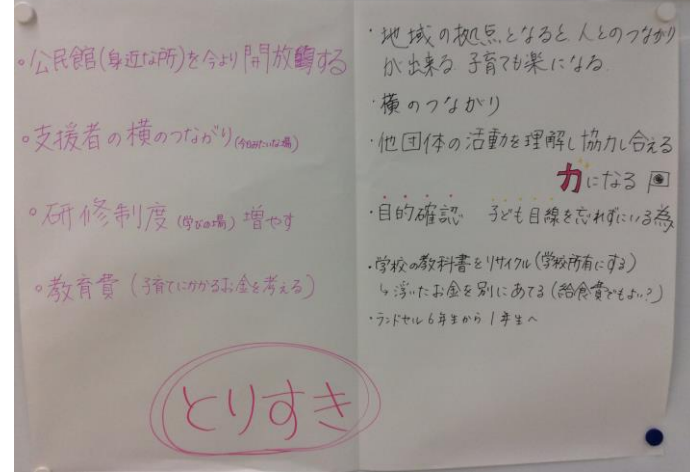 ・公民館(身近な所)を今より開放する
・支援者の横のつながり(今日みたいな場)
・研修制度(学びの場)増やす
・教育費(子育てにかかるお金を考える)
とりすき
・地域の拠点となると人とのつながり
が出来る 子育ても楽になる
・横のつながり
・他団体の活動を理解し協力し合える
力になる
・目的確認 子ども目線を忘れずにいる為
・学校の教科書をリサイクル(学校所有にする)
↳浮いたお金を別にあてる(給食費でもよい?)
・ランドセル6年生から1年生へ